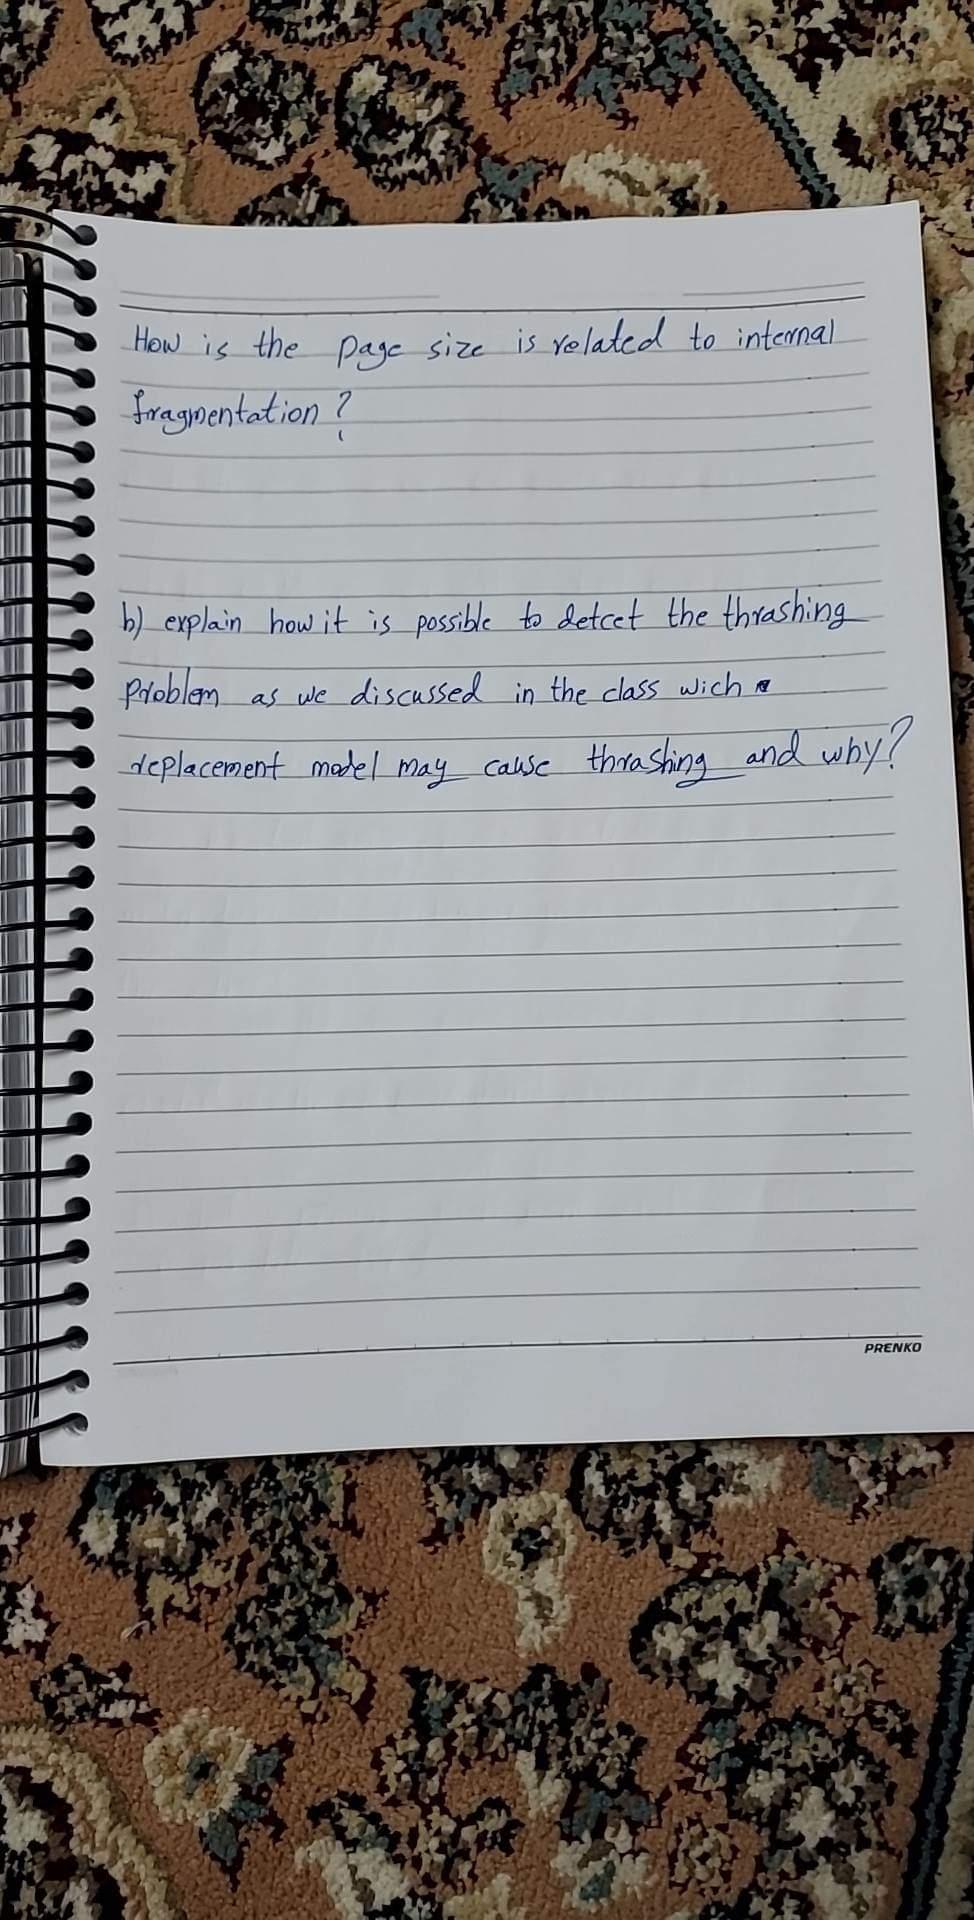 How is the page size is related to internal
fragmentation?
b) explain how it is possible to detcet the thrashing
problem as we discussed in the class wich
replacement model may cause thrashing and why?
PRENKO